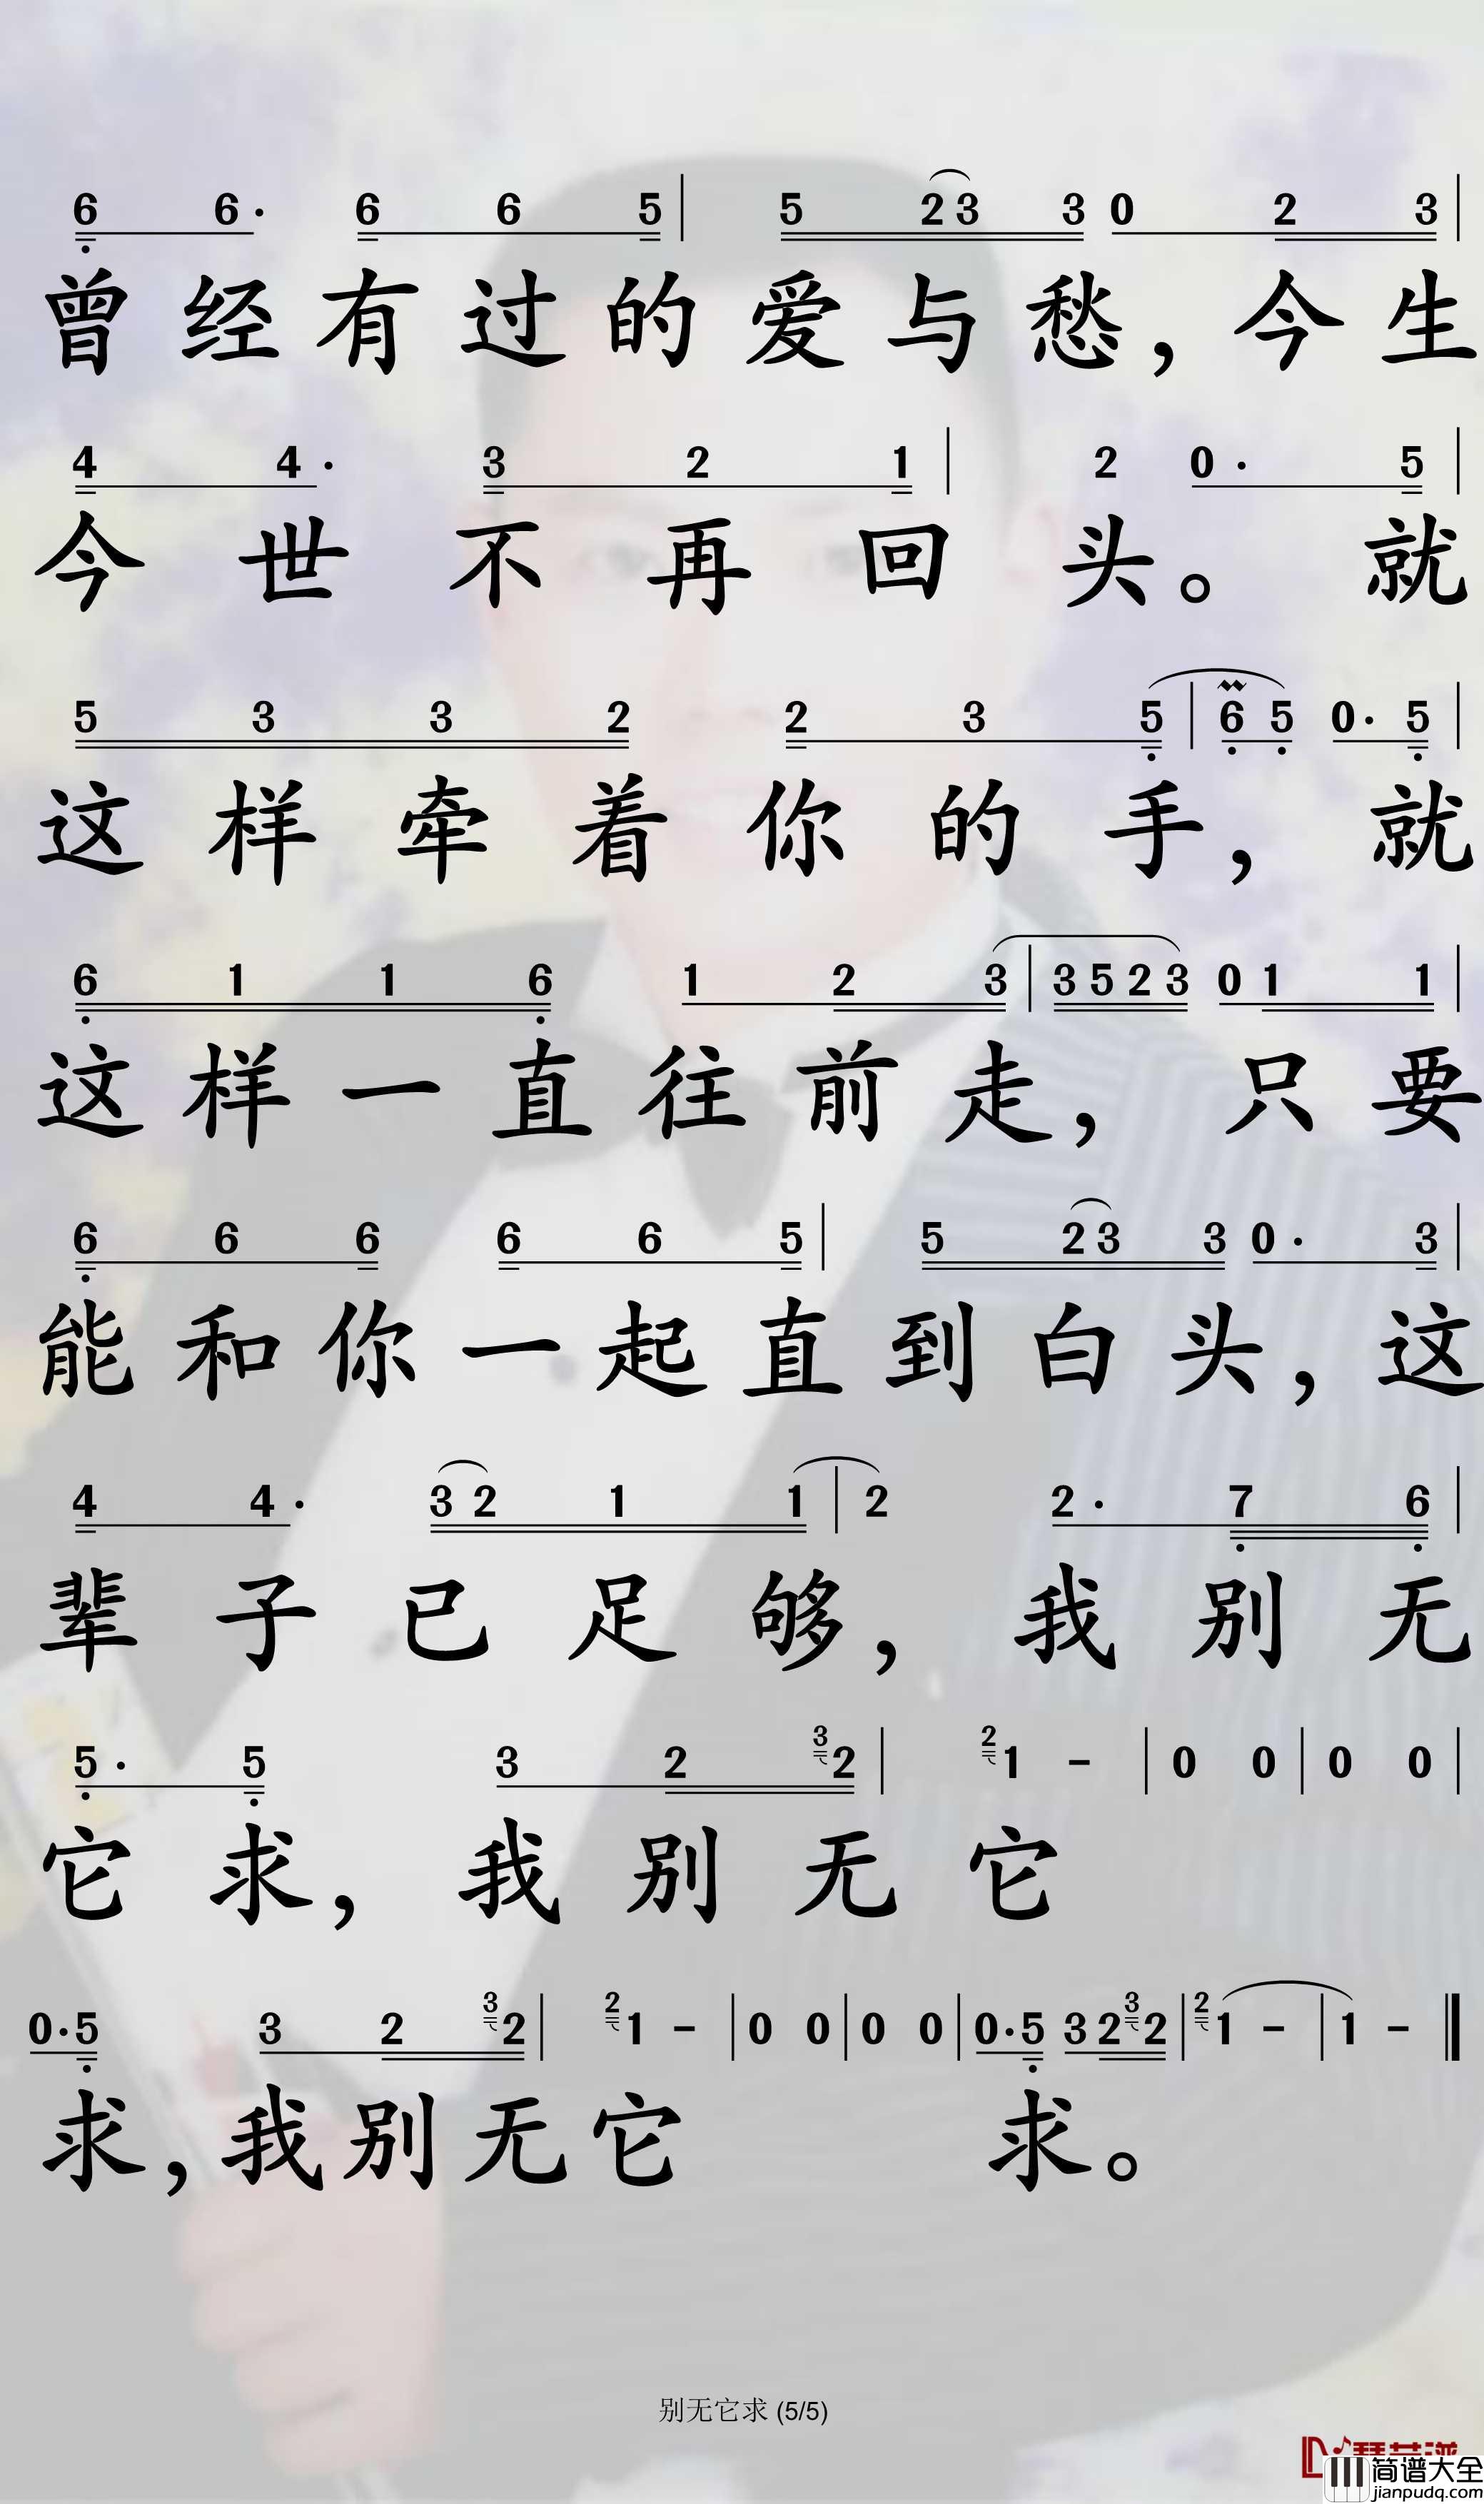 6 6· 6 6 5 | 5 2 3 3 0 2 3 |
曾经有过的爱与愁,今生
4 4· 3 2 1 | 2 0· 5 |
今世不再回头。就
5 3 3 2 2 3 5 | 6 5 0· 5 |
这样牵着你的手,就
6 1 1 6 1 2 3 | 3 5 2 3 0 1 1 |
这样一直往前走,只要
6 6 6 6 6 5 | 5 2 3 3 0· 3 |
能和你一起直到白头,这
4 4· 3 2 1 1 | 2 2· 7 6 |
辈子已足够,我别无
5· 5 3 2 3 2 | 2 1 - | 0 0 | 0 0 |
它求,我别无它
0· 5 3 2 3 2 | 2 1 - | 0 0 | 0 0 | 0· 5 3 2 3 2 | 2 1 - | 1 - ‖
求,我别无它 求。
别无它求 (5/5)
简谱大全
jianpudq.com